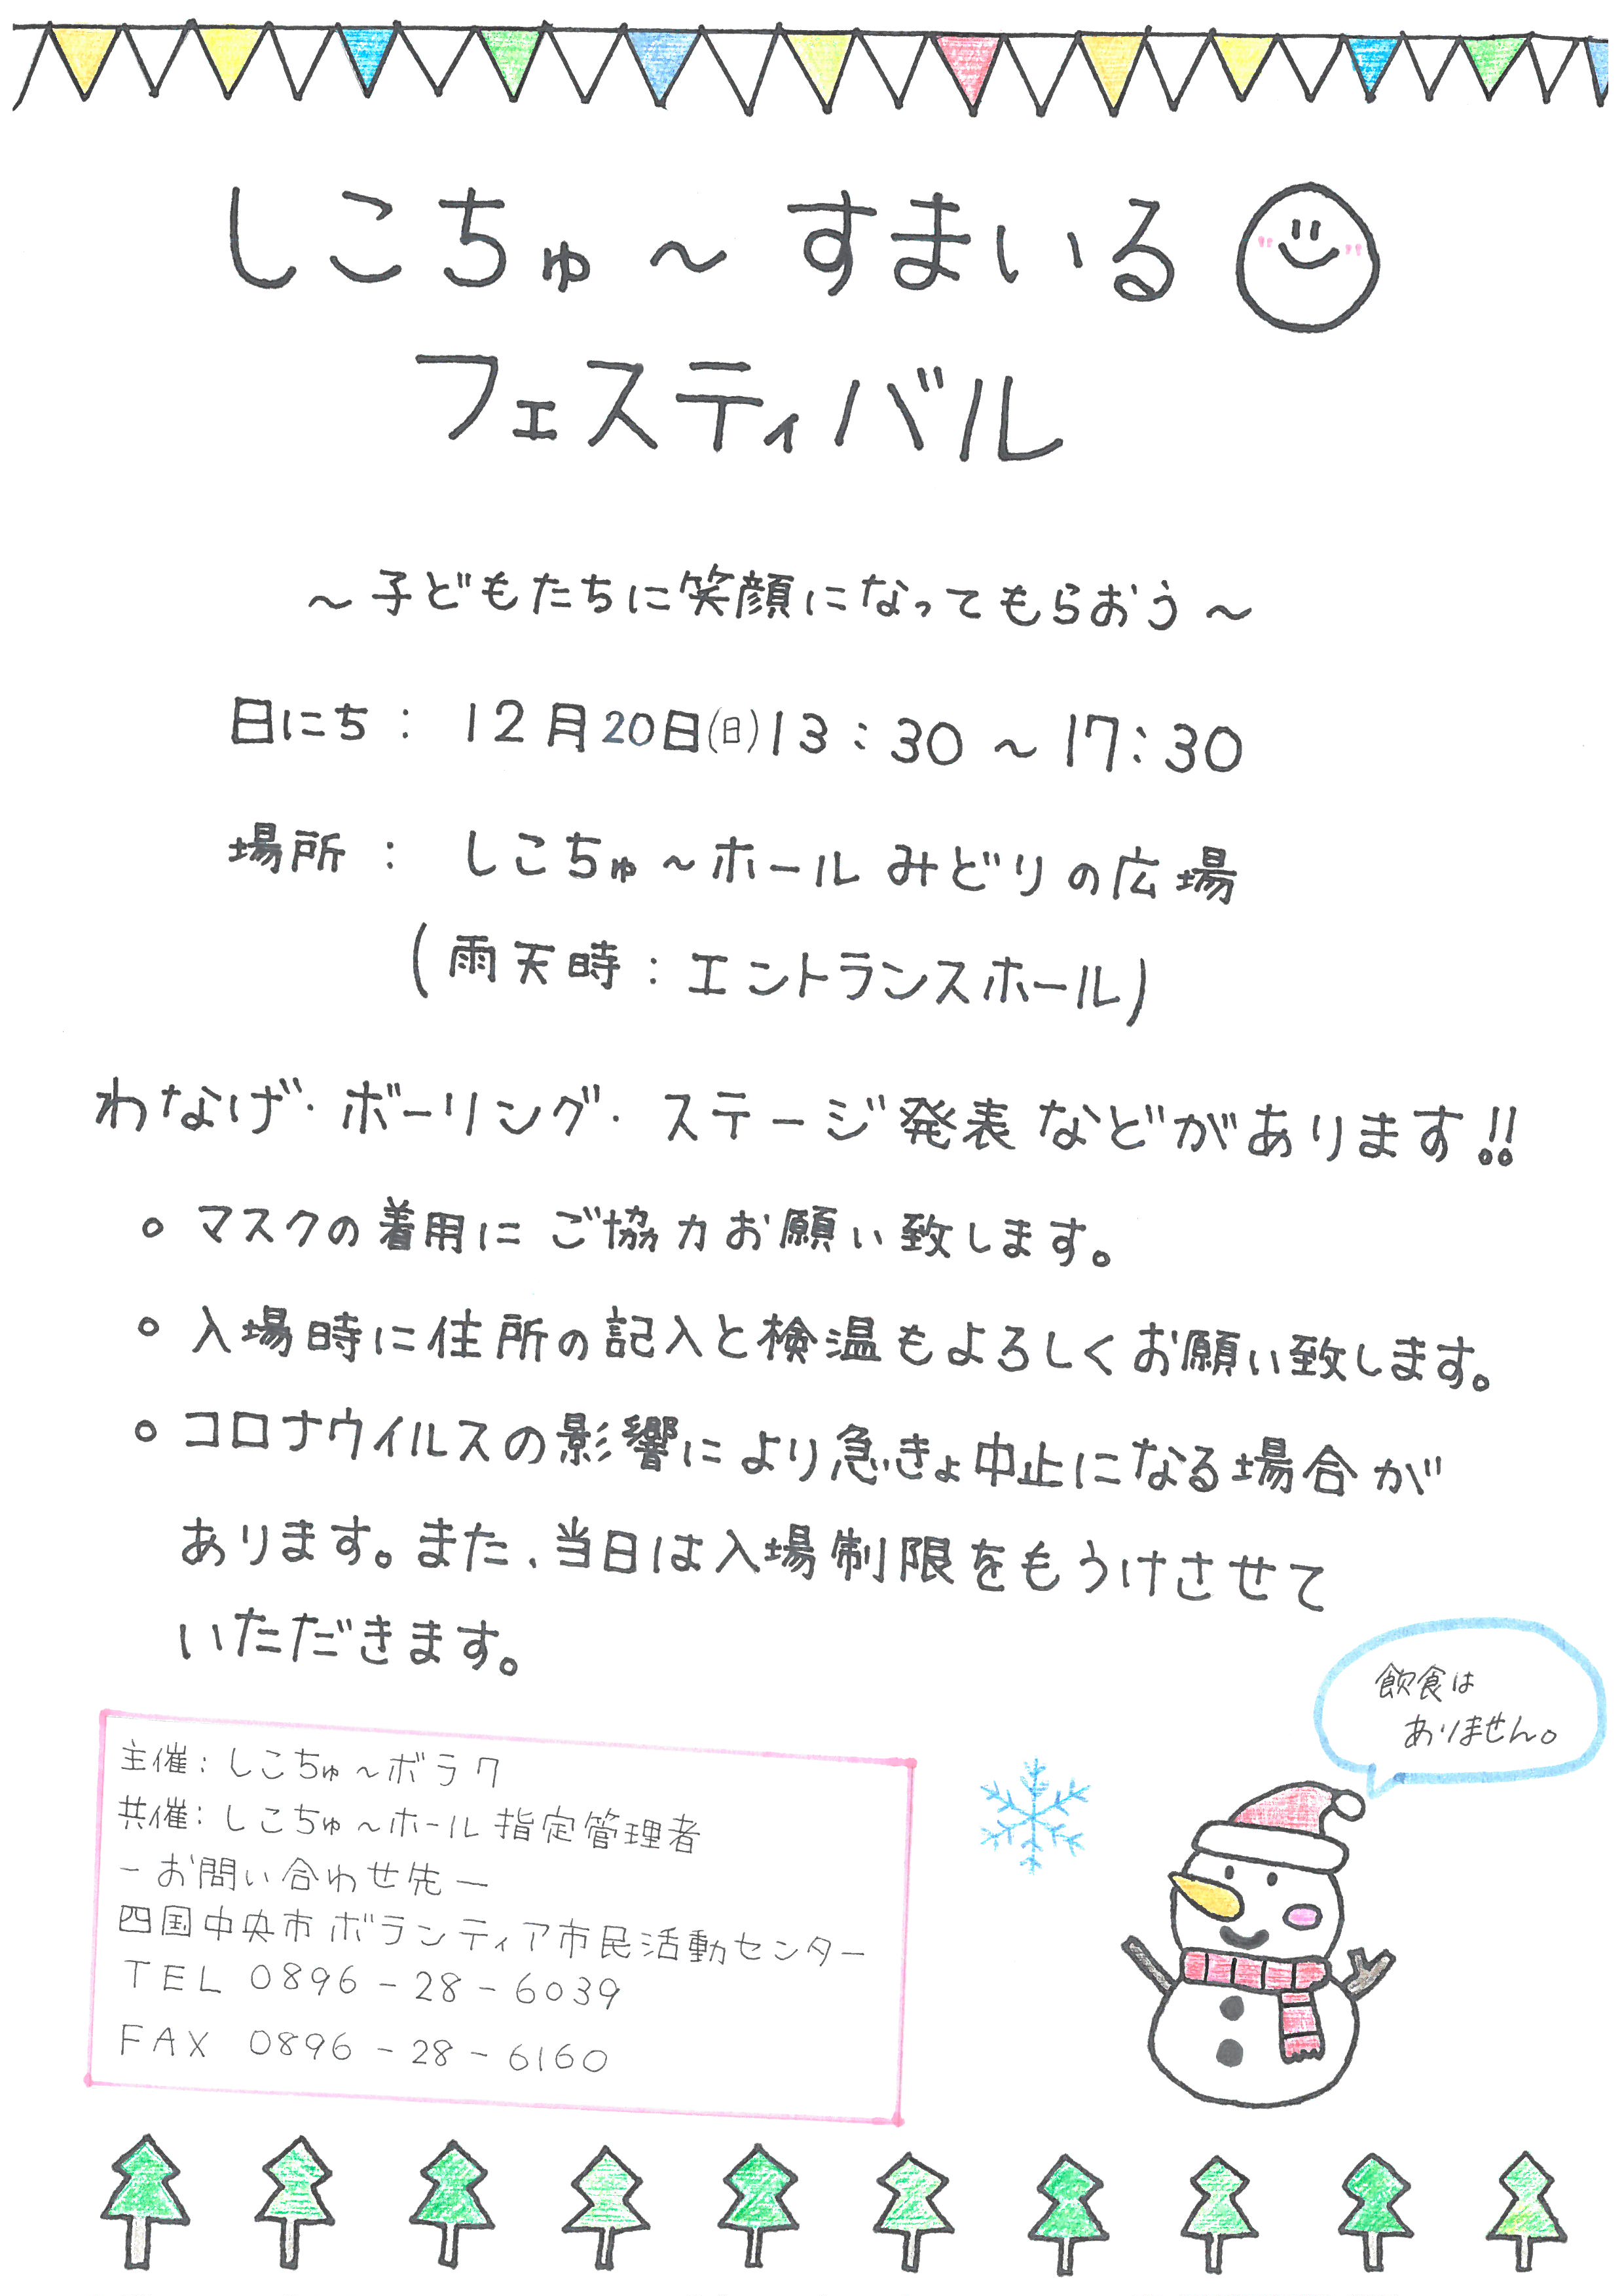 しこちゅ～すまいる
フェスティバル
～子どもたちに笑顔になってもらおう～
日にち： 12月20日(日)13：30～17：30
場所： しこちゅ～ホール みどりの広場
(雨天時：エントランスホール)
わなげ・ボーリング・ステージ発表などがあります!!
○ マスクの着用にご協力お願い致します。
○ 入場時に住所の記入と検温もよろしくお願い致します。
○ コロナウイルスの影響により急きょ中止になる場合が
あります。また、当日は入場制限をもうけさせて
いただきます。
飲食は
ありません。
主催：しこちゅ～ボラク
共催：しこちゅ～ホール指定管理者
－お問い合わせ先－
四国中央市ボランティア市民活動センター
TEL 0896－28－6039
FAX 0896－28－6160